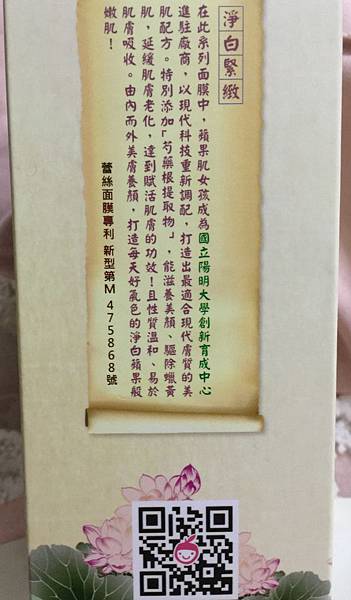 淨白緊緻
在此系列面膜中，蘋果肌女孩成為國立陽明大學創新育成中心
進駐廠商，以現代科技重新調配，打造出最適合現代膚質的美
肌配方。特別添加「芍藥根提取物」，能滋養美顏、驅除蠟黃
肌，延緩肌膚老化，達到賦活肌膚的功效！且性質溫和、易於
肌膚吸收。由內而外美膚養顏，打造每天好氣色的淨白蘋果般
嫩肌！
蕾絲面膜專利 新型第M 475868號